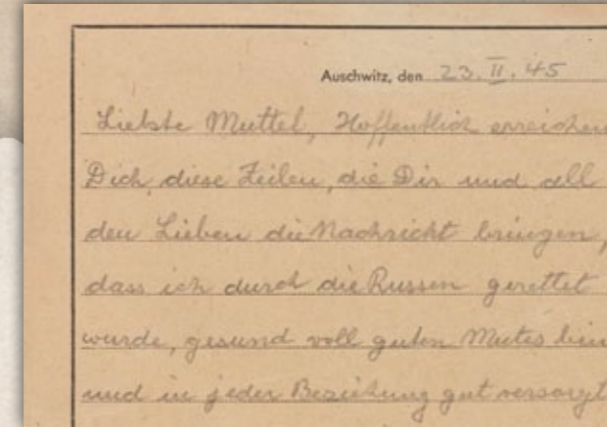 Auschwitz, den 23. II. 45
Liebste Muttel, Hoffentlich erreichen
Dich diese Zeilen, die Dir und all
den Lieben die Nachricht bringen,
dass ich durch die Russen gerettet
wurde, gesund voll guten Mutes bin
und in jeder Beziehung gut versorgt